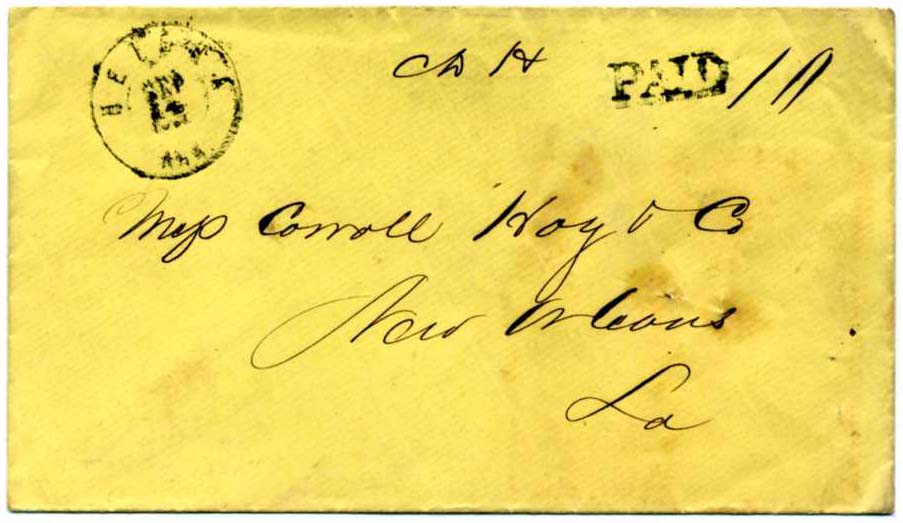 HELENA
SEP
14
ARK
Ch H PAID 10
Mess Carroll Hoy & Co
New Orleans
La